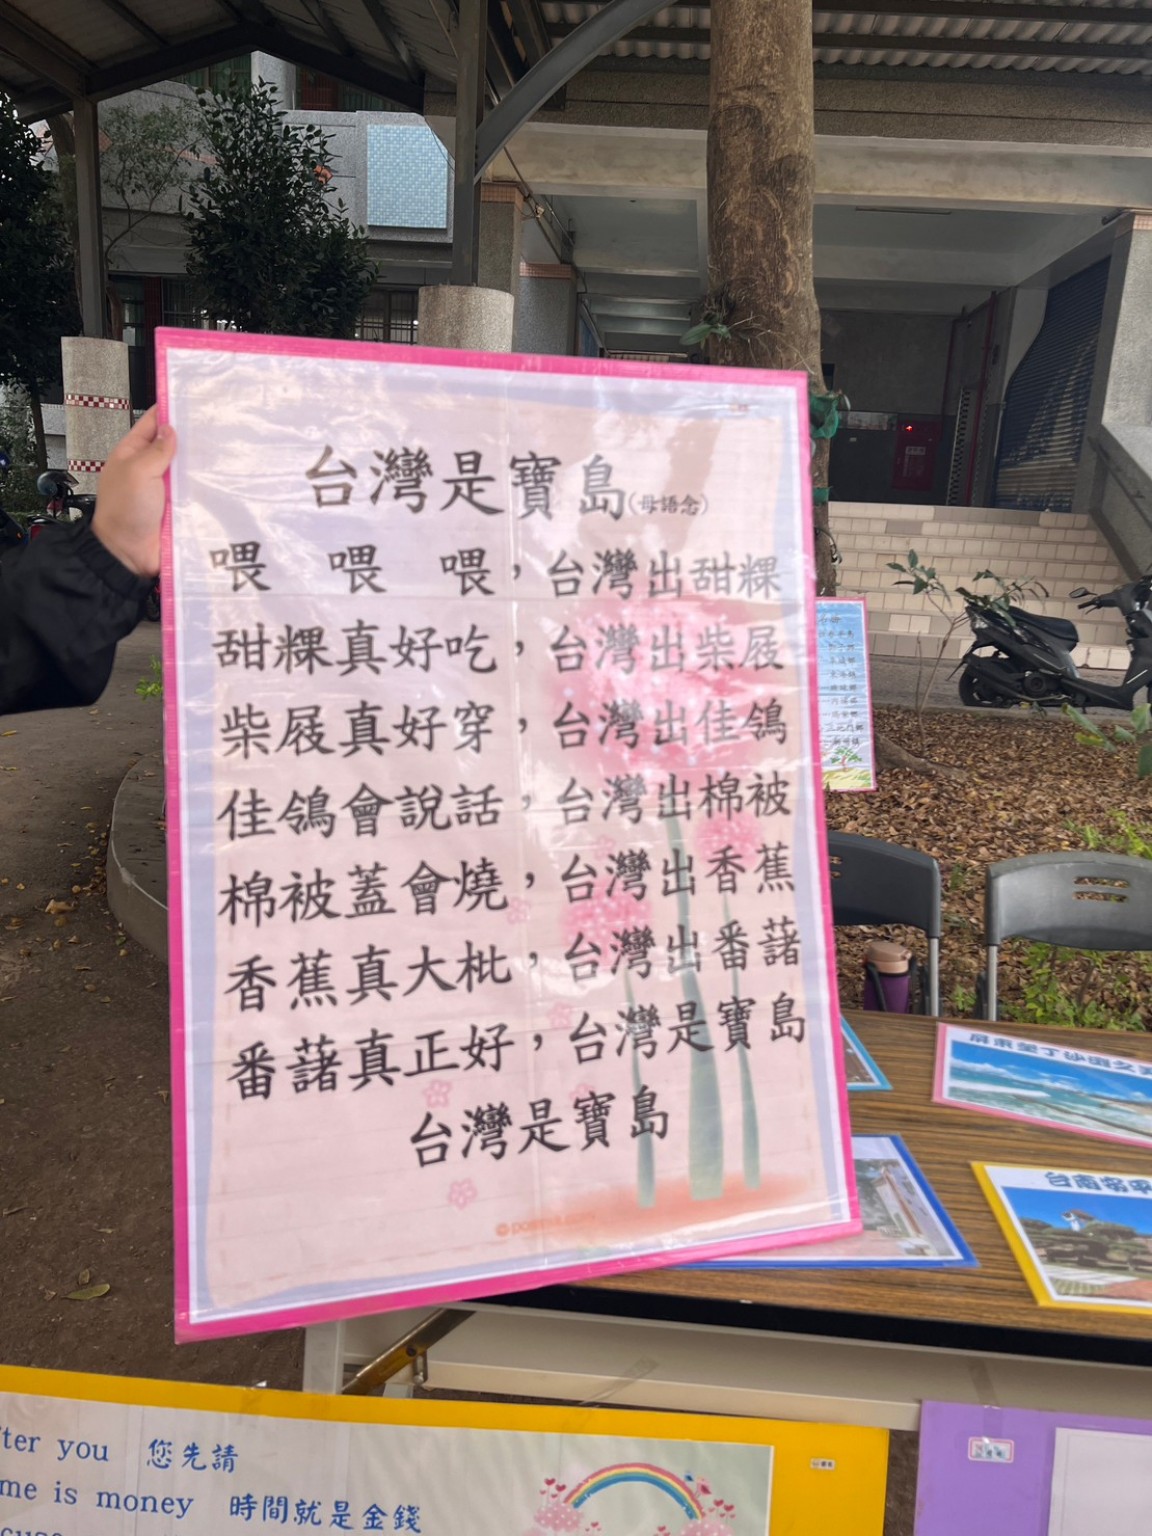 台灣是寶島(母語念)
喂 喂 喂，台灣出甜粿
甜粿真好吃，台灣出柴屐
柴屐真好穿，台灣出佳鴒
佳鴒會說話，台灣出棉被
棉被蓋會燒，台灣出香蕉
香蕉真大枇，台灣出番藷
番藷真正好，台灣是寶島
台灣是寶島
屏東墾丁沙
台南
ter you 您先請
me is money 時間就是金錢